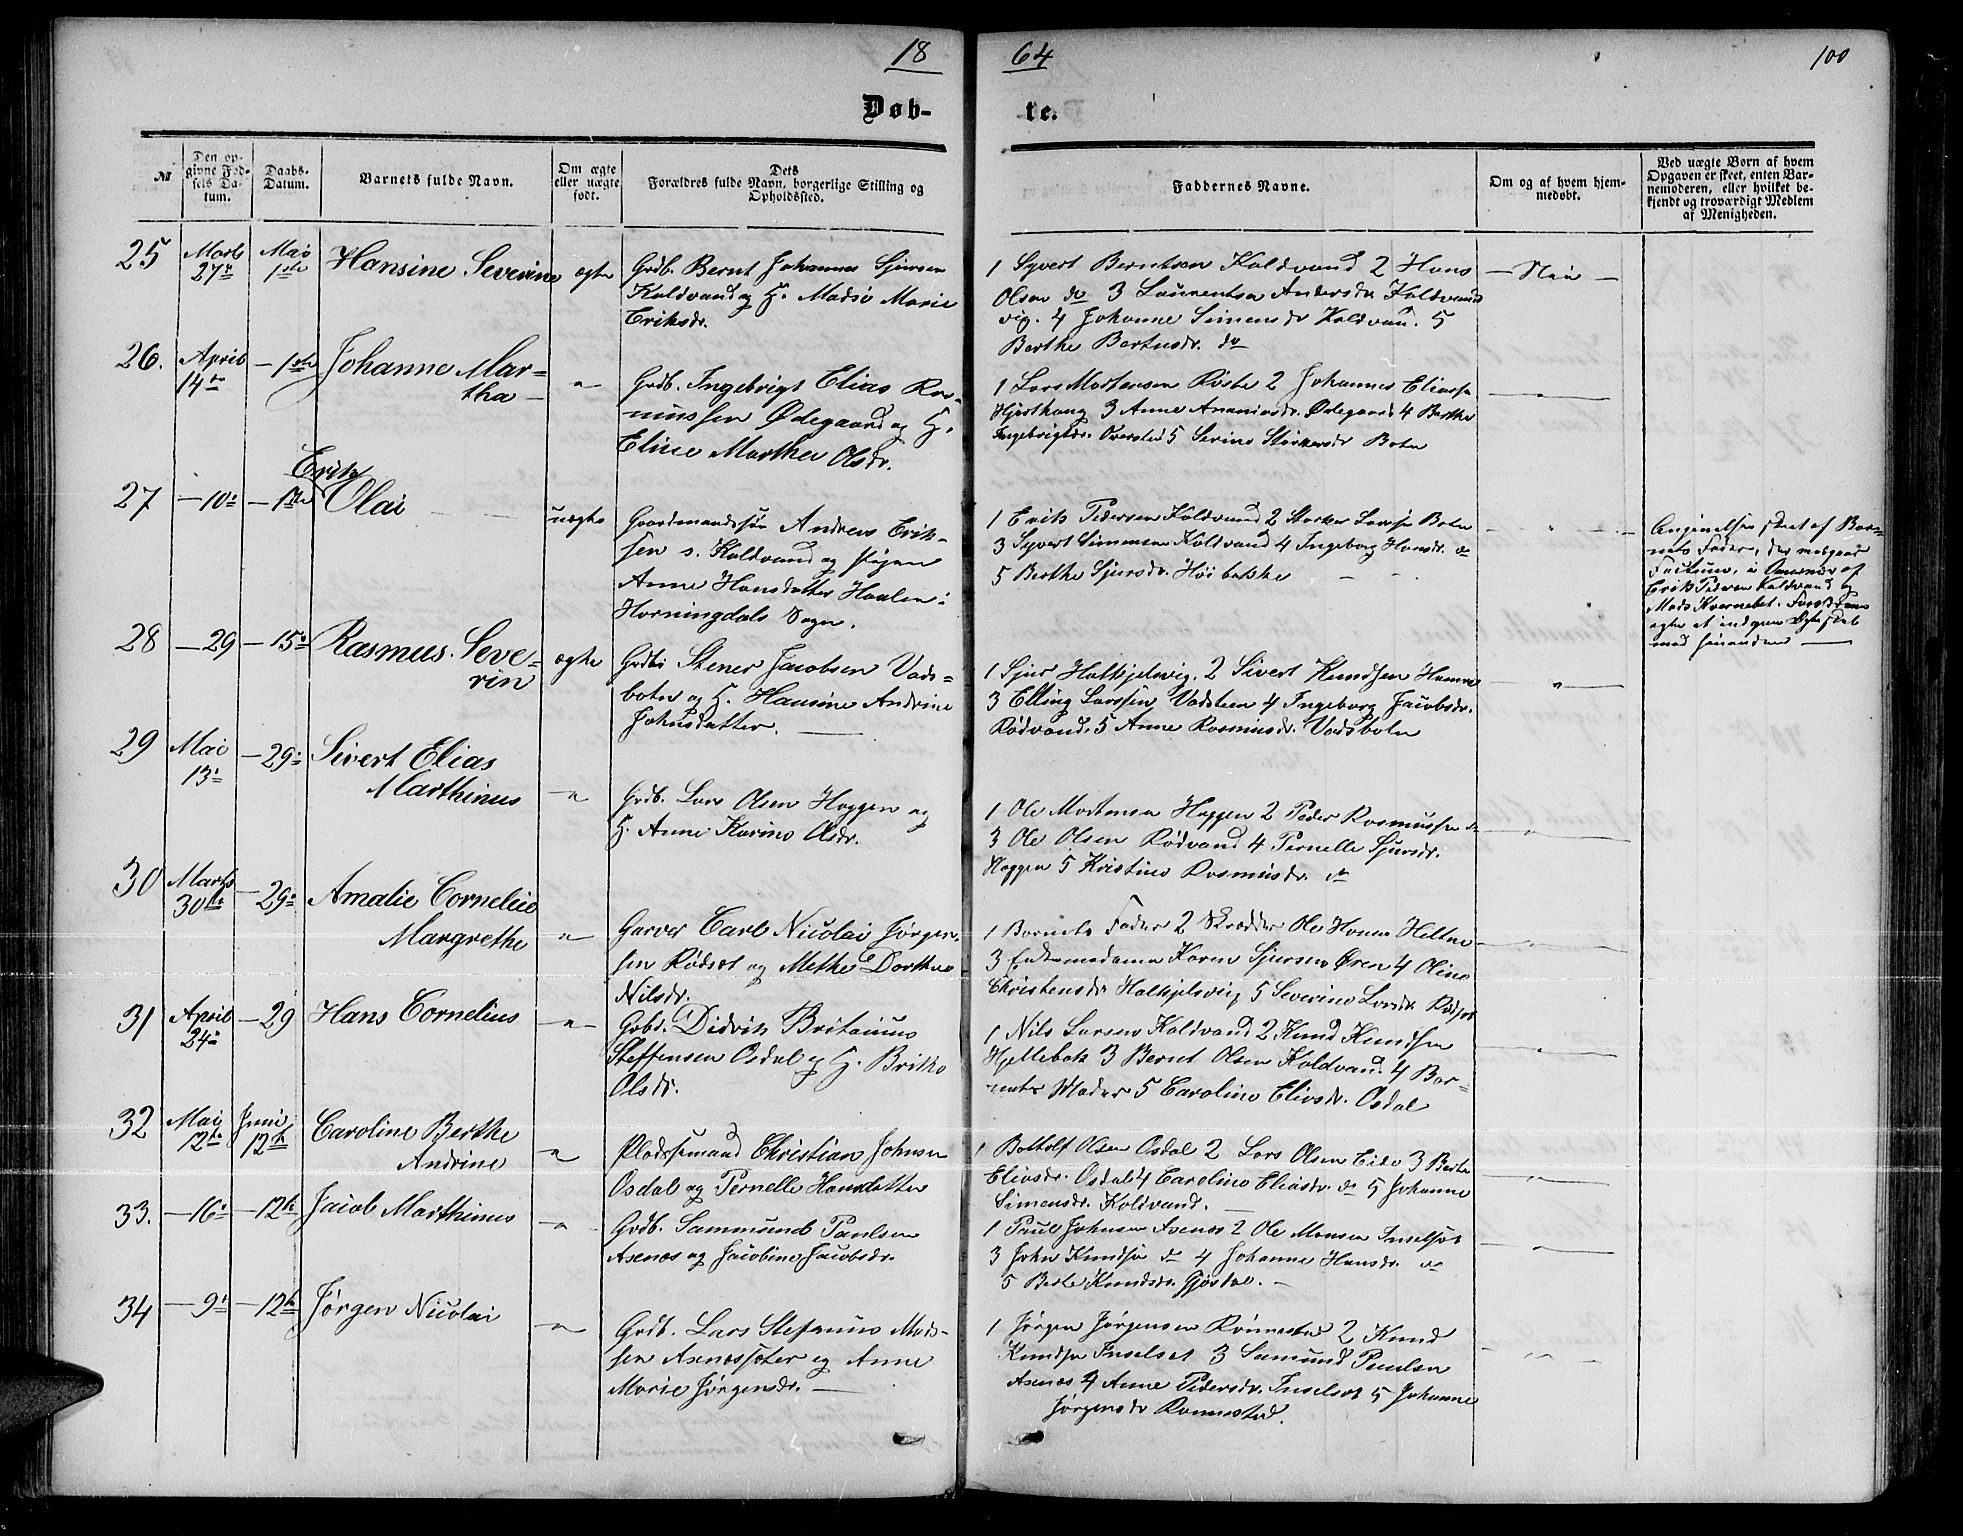 18 64 100
Døb- te.
№
Den op-
givne Fød-
sels Da-
tum.
Daabs-
Datum.
Barnets fulde Navn.
Om ægte
eller uægte
født.
Dets
Forældres fulde Navn, borgerlige Stilling og
Opholdssted.
Faddernes Navne.
Om og af hvem hjem-
medøbt.
Ved uægte Børn af hvem
Opgaven er skeet, enten Bar-
nemoderen, eller hvilket be-
kjendt og troværdigt Medlem
af Menigheden.
25 Marts 27de Mai 1ste Hansine Severine ægte
Grdb. Bernt Johannes Sjursen
Koldvand og H. Madsi Marie
Eriksdr.
1 Syvert Berntsen Koldvand 2 Hans
Olsen do 3 Laurentse Andersdr Koldvands
vig. 4 Johanne Simensdr Koldvan. 5
Berthe Berntsdr. do
— Nei —
26. April 14de — 1ste Johanne Mar=
tha — "
Grdb. Ingebrigt Elias Ras-
mussen Ødegaard og H.
Eline Marthea Olsdr.
1 Lars Mortensen Riste 2 Johannes Eliassen
Hjorthoug 3 Anne Ananiasdr. Ødegaard 4 Berthe
Ingebrigtdr. Oversted 5 Serine Størkersdr Botn
27 — 10de — 1ste Erik
Olai uægte
Gaardmandssøn Andreas Erik-
sen s. Koldvand og pigen
Anne Hansdatter Haalen i
Horningdals Sogn.
1 Erik Pedersen Koldvand 2 Storker Larsen Botn
3 Syvert Simensen Koldvand 4 Ingeborg Hansdr. do
5 Berthe Sjursdr. Høibakke
Angivelsen skeet af Bar-
nets Fader, der vedgaar
Factum, i Overvær af
Erik Pedersen Koldvand og
Mads Kvernebet. Forældrene
agte at indgaa Ægteskab
med hinanden —
28 — 29 — 15de Rasmus Seve=
rin ægte
Grdbr. Stener Jacobsen Vads=
boten og H. Hansine Andrine
Johnsdatter. —
1 Sjur Halkjelsvig. 2 Sivert Knudsen Hamre
3 Elling Larssen Vadsteen 4 Ingeborg Jacobsdr.
Rødvand. 5 Anne Rasmusdr. Vadsboten
29 Mai 13de — 29de Sivert Elias
Marthinus "
Grdb. Lars Olsen Haggen og
H. Anne Karine Olsdr.
1 Ole Mortensen Haggen 2 Peder Rasmussen do
3 Ole Olsen Rødvand 4 Pernelle Sjursdr.
Haggen 5 Kristine Rasmusdr. do
30 Marts 30te — 29de Amalie Cornelie
Margrethe "
Garver Carl Nicolai Jørgen-
sen Rødset og Methe Dorthea
Nilsdr.
1 Barnets Fader 2 Skrædder Ole Hansen Heltne
3 Enkemadame Karen Sjursen Øren 4 Oline
Christensdr Halkjelsvig 5 Severine Larsdr Rødset
31 April 24de — 29 Hans Cornelius "
Grbd. Didrik Britanius
Steffensen Osdal og H. Brithe
Olsdr.
1 Nils Larsen Koldvand 2 Knud Knudsen
Hjellebak 3 Bernt Olsen Koldvand 4 Bar=
nets Moder 5 Caroline Eliasdr. Osdal
32 Mai 12te Juni 12te Caroline Berthe
Andrine "
Pladssemand Christian Johnsen
Osdal og Pernelle Hansdatter
1 Bottolf Olsen Osdal 2 Lars Olsen Eide 3 Berte
Eliasdr. Osdal 4 Caroline Eliasdr. do 5 Johanne
Simensdr. Koldvand. —
33. — 16de — 12te Jacob Marthinus "
Grdb. Sammund Paulsen
Axenæs og Jacobine Jacobsdr.
1 Paul Johnsen Axenæs 2 Ole Monsen Inselset
3 John Knudsen do 4 Johanne Hansdr. do
5 Berte Knudsdr. Gjørdal. —
34 — 9de — 12te Jørgen Nicolai "
Grdb. Lars Stefanus Mad-
sen Axenæssæter og Anne
Marie Jørgensdr. —
1 Jørgen Jørgensen Rønnestad 2 Knud
Knudsen Inselset 3 Samund Paulsen
Axenæs 4 Anne Pedersdr. Inselset 5 Johanne
Jørgensdr Rønnestad.